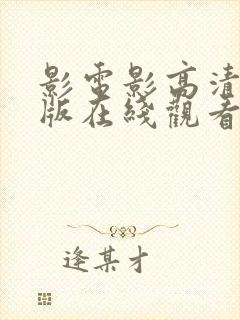 影電影高清
版在綫觀看
逢某才